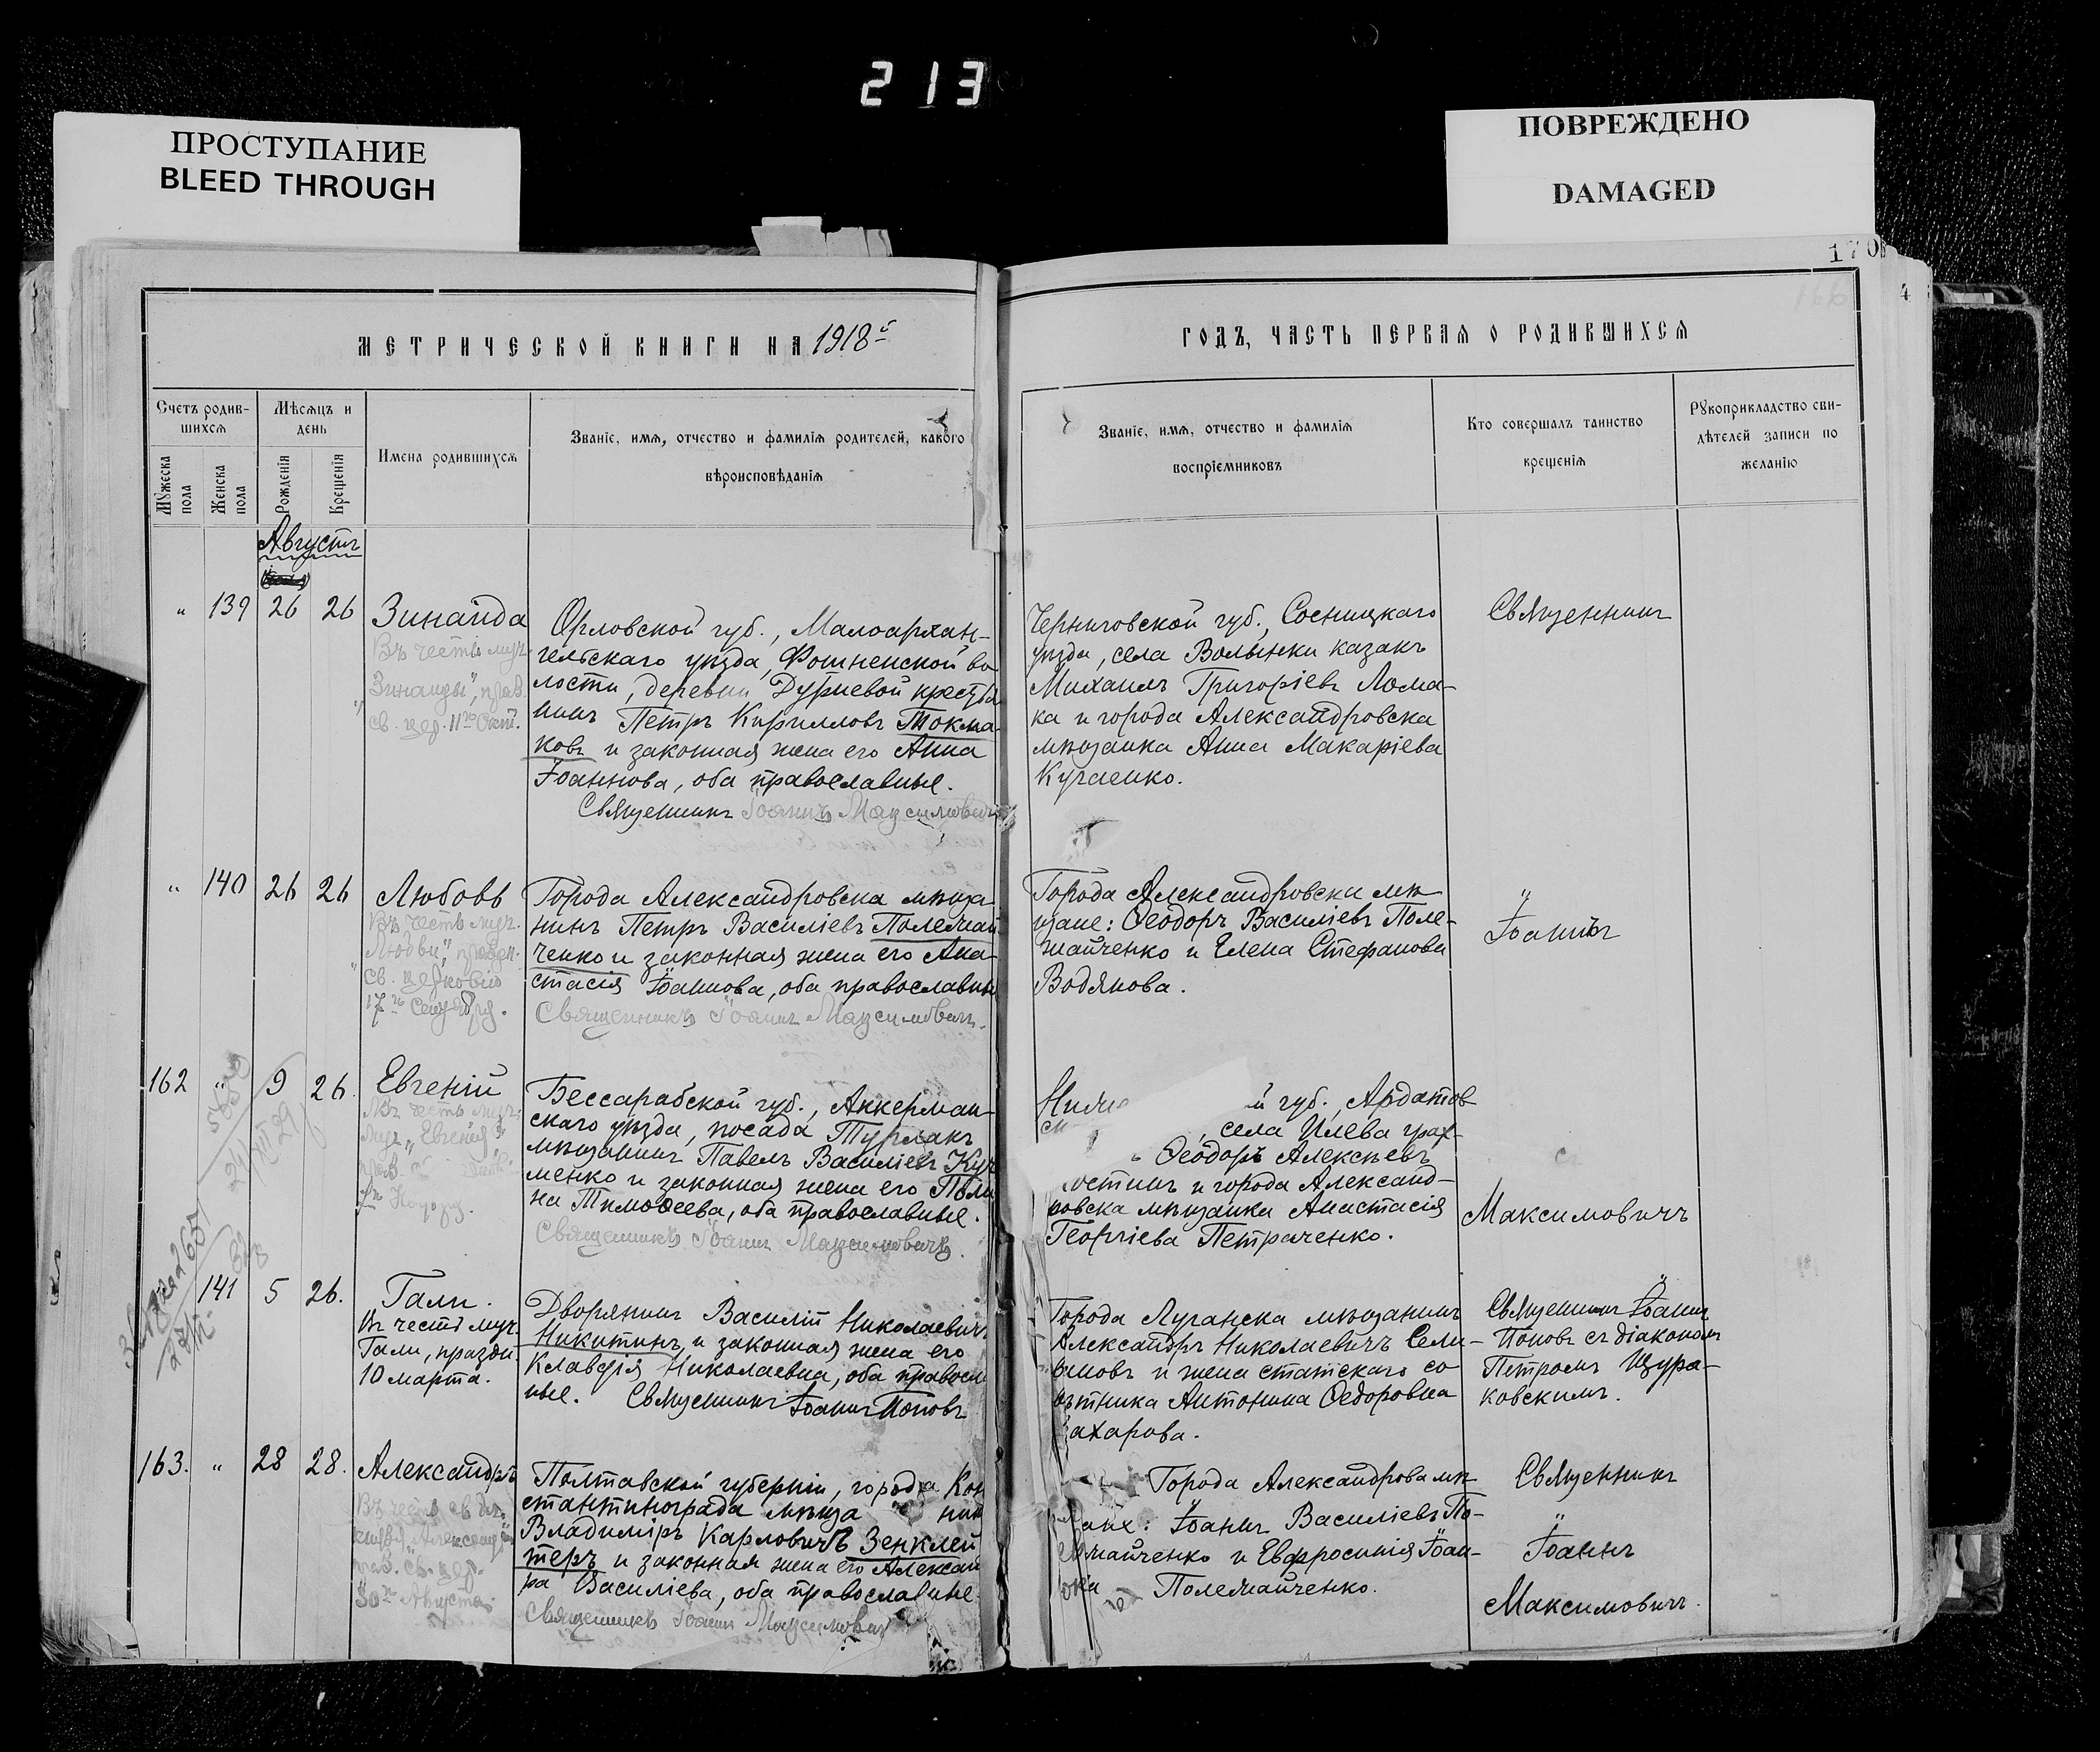 213
ПРОСТУПАНИЕ
BLEED THROUGH
ПОВРЕЖДЕНО
DAMAGED
170
4
МЕТРИЧЕСКОЙ КНИГИ НА 1918й
ГОДЪ, ЧАСТЬ ПЕРВАЯ О РОДИВШИХСЯ
Счетъ родив-
шихся
Мѣсяцъ и
день
Мужеска
пола
Женска
пола
Рожденія
Крещенія
Имена родившихся
Званіе, имя, отчество и фамилія родителей, какого
вѣроисповѣданія
Званіе, имя, отчество и фамилія
воспріемниковъ
Кто совершалъ таинство
крещенія
Рукоприкладство сви-
дѣтелей записи по
желанію
Августъ
" 139 26 26 Зинаида
Въ честь муч.
"Зинаиды", праз.
св. цер. 11го Окт.
Орловской губ., Малоархан-
гельскаго уѣзда, Фошненской во
лости, деревни крестья
нинъ Петръ Кирилловъ Токма-
ковъ и законная жена его Анна
Іоаннова, оба православные.
Священникъ Іоаннъ Максимовичъ
Черниговской губ., Сосницкаго
уѣзда, села Волынки казакъ
Михаилъ Григоріевъ Лома-
ка и города Александровска
мѣщанка Анна Макаріева
Кучаенко.
Священникъ
" 140 26 26 Любовь
Въ честь муч.
"Любови", праздн.
св. церковью
17го Сентября.
Города Александровска мѣща-
нинъ Петръ Василіевъ Полежай
ченко и законная жена его Ана-
стасія Іоаннова, оба православны
Священникъ Іоаннъ Максимовичъ.
Города Александровска мѣ-
щане: Ѳеодоръ Василіевъ Поле-
жайченко и Елена Стефанова
Водянова.
Іоаннъ
162 " 9 26. Евгеній
Въ честь муч.
муч. "Евгенія"
Бессарабской губ., Аккерман-
скаго уѣзда, посада Турлакъ
мѣщанинъ Павелъ Василіевъ Куз
менко и законная жена его Поли
на Тимоѳеева, оба православные.
Священникъ Іоаннъ Максимовичъ.
й губ., Ардатов
села Илева граж-
Ѳеодоръ Алексѣевъ
остинъ и города Александ-
ровска мѣщанка Анастасія
Георгіева Петраченко.
Максимовичъ
141 5 26. Гали.
Въ честь муч.
Гали, праздн.
10 марта.
Дворянинъ Василій Николаевичъ
Никитинъ и законная жена его
Клавдія Николаевна, оба правосл
ные. Священникъ Іоаннъ Поповъ
Города Луганска мѣщанинъ
Александръ Николаевичъ Сели-
ановъ и жена статскаго со
вѣтника Антонина Ѳедоровна
Захарова.
Священникъ Іоаннъ
Поповъ съ діакономъ
Петромъ Щура-
ковскимъ.
163. " 28 28. Александръ
Въ честь св. бл.
князя "Александра"
праз. св. цер.
30го Августа.
Полтавской губерніи, города Кон
стантинограда мѣща нин
Владиміръ Карловичъ Зенклей
теръ и законная жена его Алексан
ра Василіева, оба православные.
Священникъ Іоаннъ Максимовичъ
Города Александрова мѣ-
щане: Іоаннъ Василіевъ По-
лежайченко и Евфросинія Іоан-
нова Полежайченко.
Священникъ
Іоаннъ
Максимовичъ.